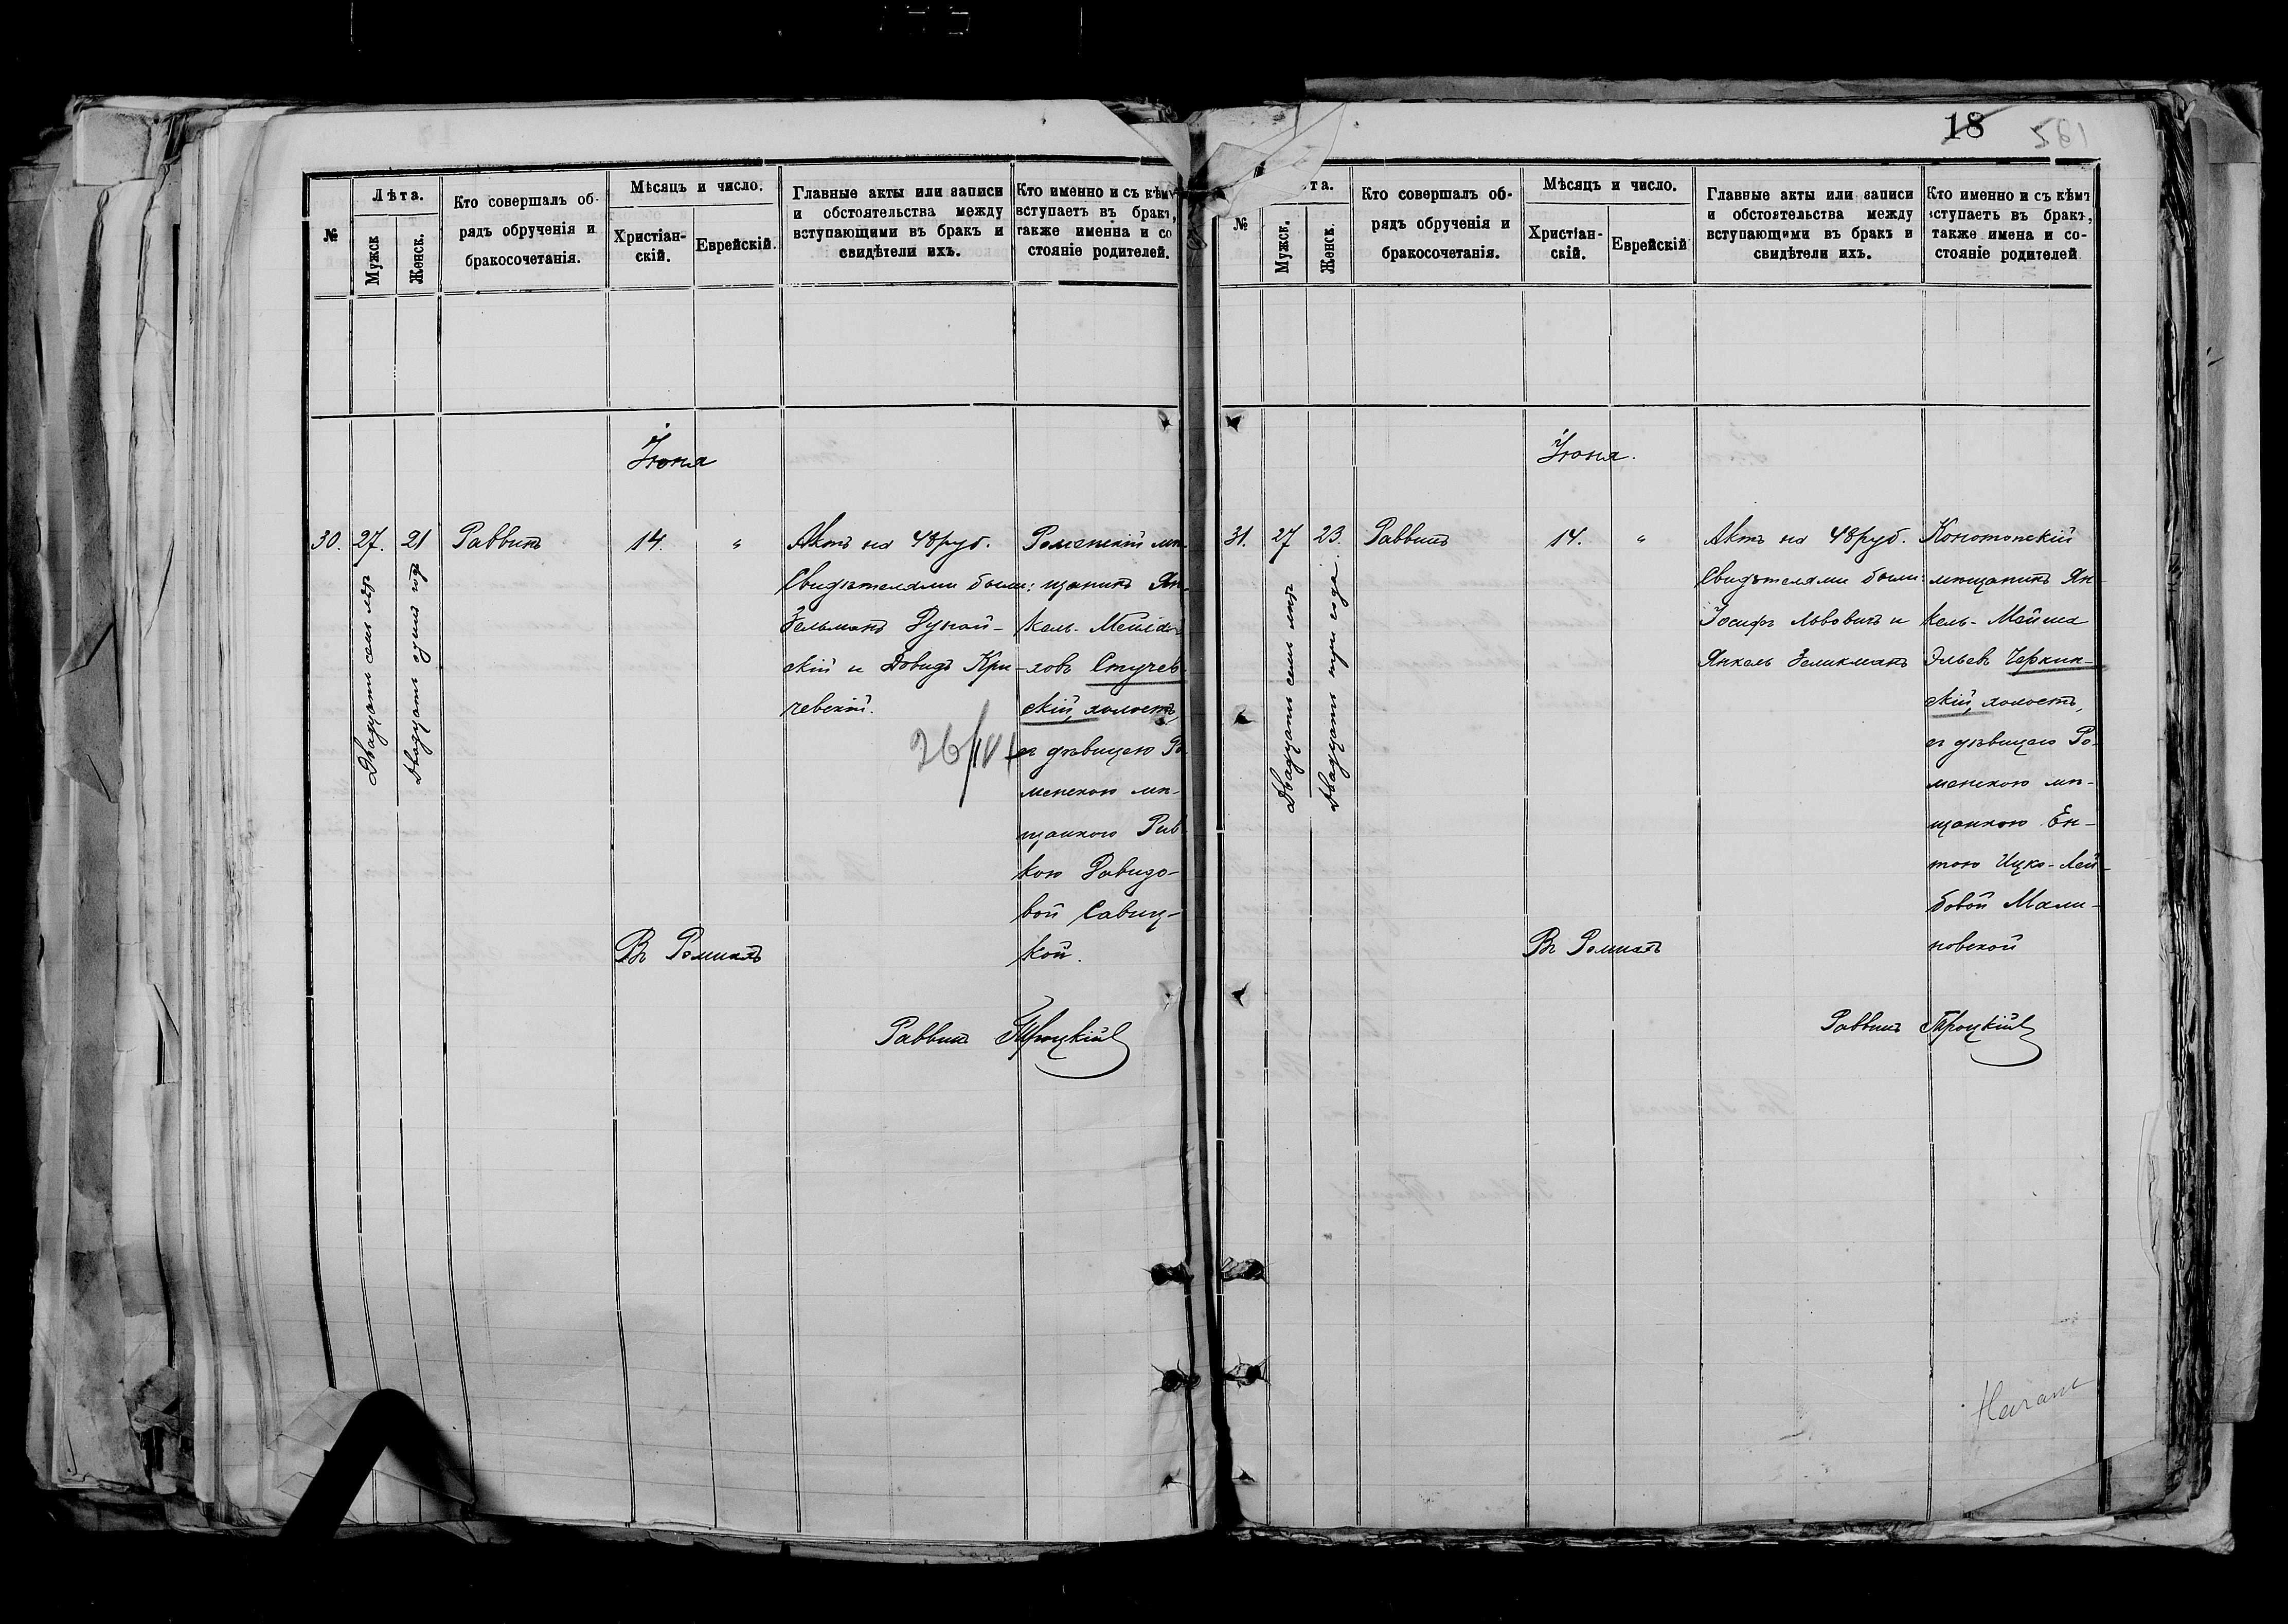 №
Лѣта.
Мужск
Женск.
Кто совершалъ об-
рядъ обрученія и
бракосочетанія.
Мѣсяцъ и число.
Христіан-
скій.
Еврейскій.
Главные акты или записи
и обстоятельства между
вступающими въ бракъ и
свидѣтели ихъ.
Кто именно и съ кѣмъ
вступаетъ въ бракъ,
также именна и со
стояніе родителей.
Іюня
30. 27. 21 Раввинъ 14. "
Двадцать семь лѣтъ
Двадцать одинъ годъ
Актъ на 48 руб.
Свидѣтелями были:
Зельманъ Дунай-
скій и Довидъ Кри-
чевскій.
Роменскій мѣ-
щанинъ Ян-
кель-
ховъ Стучев-
скій, холостъ,
съ дѣвицею Ро-
менскою мѣ-
щанкою Рив-
кою Давидо-
вой Савиц-
кой.
Въ Ромнахъ
Раввинъ Троцкій
18
581
№
та.
Мужск.
Женск.
Кто совершалъ об-
рядъ обрученія и
бракосочетанія.
Мѣсяцъ и число.
Христіан-
скій.
Еврейскій
Главные акты или записи
и обстоятельства между
вступающими въ бракъ и
свидѣтели ихъ.
Кто именно и съ кѣмъ
вступаетъ въ бракъ,
также имена и со-
стояніе родителей
Іюня.
31. 27 23. Раввинъ 14. "
Двадцать семь лѣтъ
Двадцать три года
Актъ на 48 руб.
Свидѣтелями были:
Іосифъ Львовичъ и
Янкель Зеликманъ
Конотопскій
мѣщанинъ Ян-
кель-Мейша
Эльевъ Черкин-
скій, холостъ,
съ дѣвицею Ро-
менскою мѣ-
щанкою Ен-
тою Ицко-Лей-
бовой Мали-
новской
Въ Ромнахъ
Раввинъ Троцкій